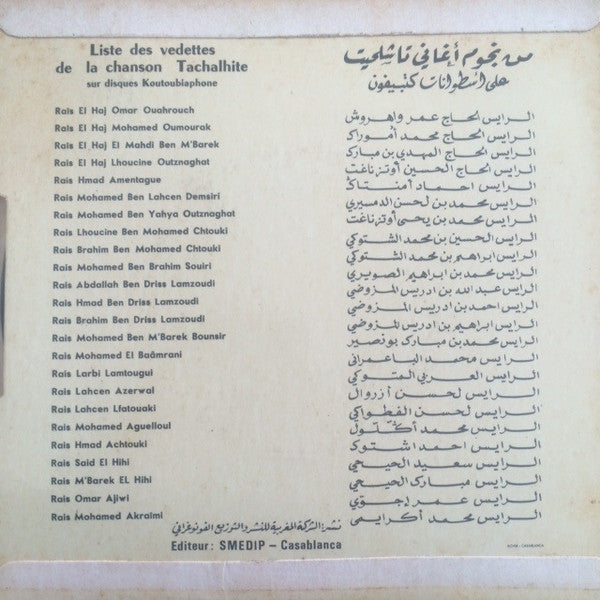 Liste des vedettes
de la chanson Tachalhite
sur disques Koutoubiaphone
Rais El Haj Omar Ouahrouch
Rais El Haj Mohamed Oumourak
Rais El Haj El Mahdi Ben M'Barek
Rais El Haj Lhoucine Outznaghat
Rais Hmad Amentague
Rais Mohamed Ben Lahcen Demsiri
Rais Mohamed Ben Yahya Outznaghat
Rais Lhoucine Ben Mohamed Chtouki
Rais Brahim Ben Mohamed Chtouki
Rais Mohamed Ben Brahim Souiri
Rais Abdallah Ben Driss Lamzoudi
Rais Hmad Ben Driss Lamzoudi
Rais Brahim Ben Driss Lamzoudi
Rais Mohamed Ben M'Barek Bounsir
Rais Mohamed El Baâmrani
Rais Larbi Lamtougui
Rais Lahcen Azerwal
Rais Lahcen Lfatouaki
Rais Mohamed Aguelloul
Rais Hmad Achtouki
Rais Said El Hihi
Rais M'Barek EL Hihi
Rais Omar Ajiwi
Rais Mohamed Akraimi
من نجوم أغاني تاشلحيت
على اسطوانات كتبيفون
الرايس الحاج عمر واهروش
الرايس الحاج محمد أموراك
الرايس الحاج المهدي بن مبارك
الرايس الحاج الحسين أوتزناغت
الرايس احماد أمنتاك
الرايس محمد بن لحسن الدمسيري
الرايس محمد بن يحيى أوتزناغت
الرايس الحسين بن محمد الشتوكي
الرايس ابراهيم بن محمد الشتوكي
الرايس محمد بن ابراهيم الصويري
الرايس عبد الله بن ادريس المزوضي
الرايس احمد بن ادريس المزوضي
الرايس ابراهيم بن ادريس المزوضي
الرايس محمد بن مبارك بونصير
الرايس محمد الباعمراني
الرايس العربي المتوكي
الرايس لحسن أزروال
الرايس لحسن الفطواكي
الرايس محمد أكلول
الرايس احمد اشتوك
الرايس سعيد الحيحي
الرايس مبارك الحيحي
الرايس عمر إجوي
الرايس محمد أكرايمي
نشر: الشركة المغربية للنشر والتوزيع الفونوغرافي
Editeur: SMEDIP – Casablanca